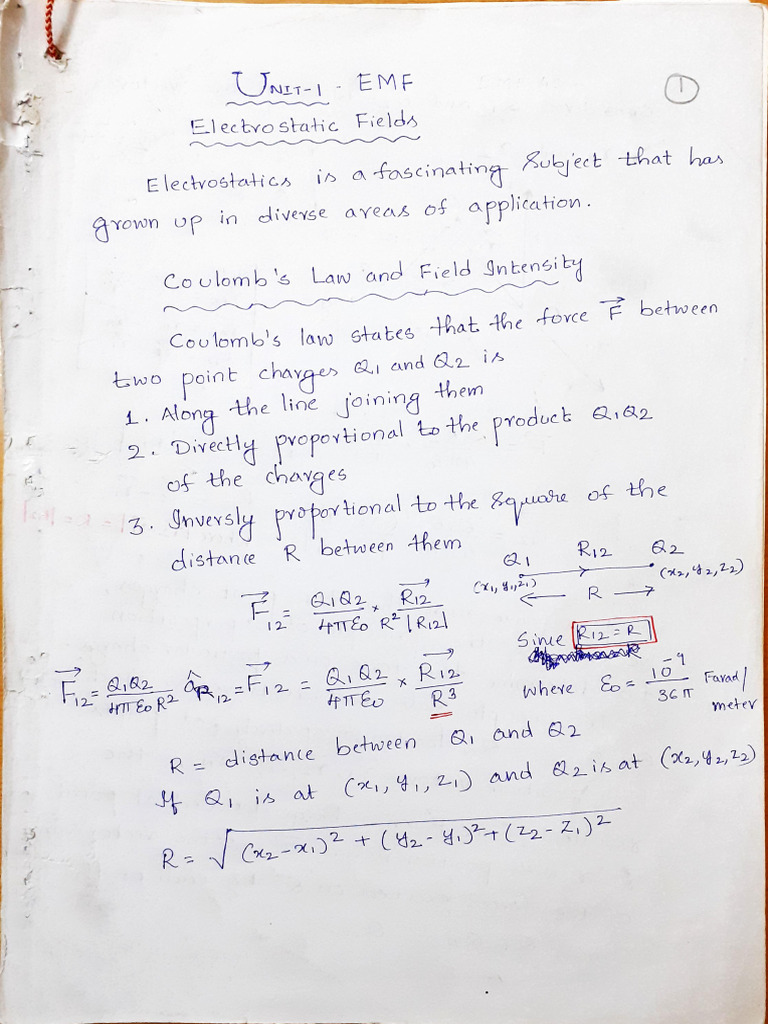 UNIT-1 - EMF
1
Electrostatic Fields
Electrostatics is a fascinating Subject that has
grown up in diverse areas of application.
Coulomb's Law and Field Intensity
Coulomb's law states that the force F⃗ between
two point charges Q1 and Q2 is
1. Along the line joining them
2. Directly proportional to the product Q1Q2
of the charges
3. Inversly proportional to the square of the
distance R between them
Q1 R12 Q2
(x1, y1, z1) (x2, y2, z2)
R
F⃗12 = Q1Q2/4πε0 R² × R⃗12/|R12|
Since R12 = R
F⃗12 = Q1Q2/4πε0 R² âR12 = F⃗12 = Q1Q2/4πε0 × R⃗12/R³
where ε0 = 10⁻⁹/36π Farad/meter
R = distance between Q1 and Q2
If Q1 is at (x1, y1, z1) and Q2 is at (x2, y2, z2)
R = √(x2-x1)² + (y2-y1)² + (z2-z1)²